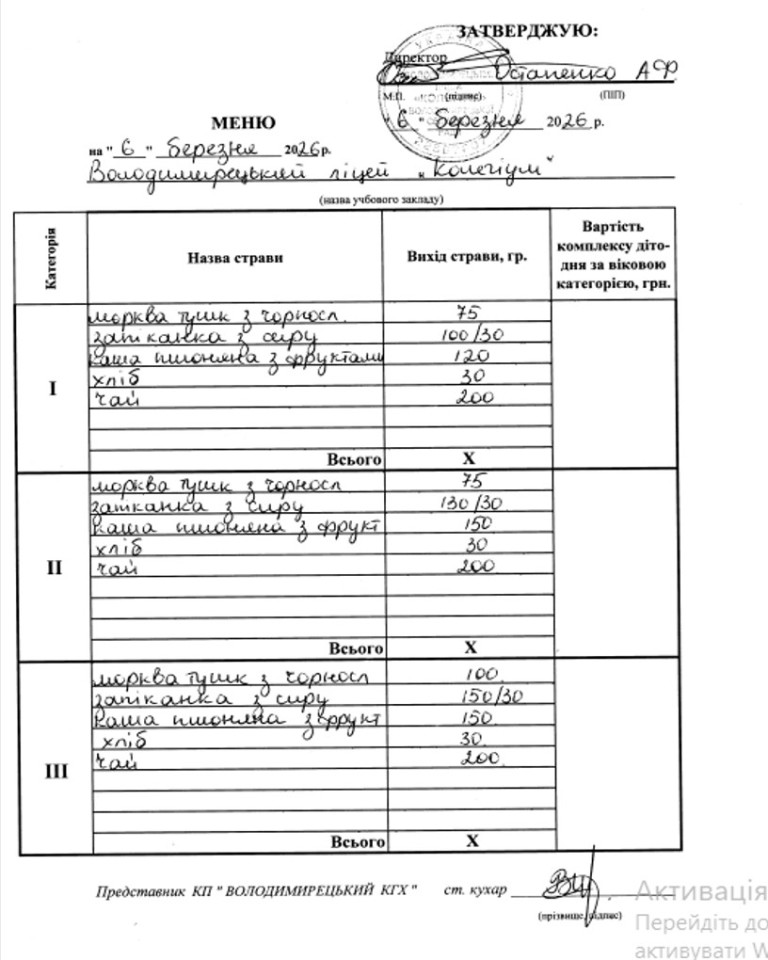 ЗАТВЕРДЖУЮ:
Директор
Остапенко А.Ф.
М.П. (підпис) (ПІП)
МЕНЮ
" 6 " березня 2026 р.
на " 6 " березня 2026р.
Володимирецький ліцей „Колегіум"
(назва учбового закладу)
Категорія
Назва страви
Вихід страви, гр.
Вартість
комплексу діто-
дня за віковою
категорією, грн.
I
морква тушк з чорносл. 75
запіканка з сиру 100/30
каша пшоняна з фруктами 120
хліб 30
чай 200
Всього X
II
морква тушк з чорносл 75
запіканка з сиру 130/30
каша пшоняна з фрукт 150
хліб 30
чай 200
Всього X
III
морква тушк з чорносл 100
запіканка з сиру 150/30
каша пшоняна з фрукт 150
хліб 30
чай 200
Всього X
Представник КП " ВОЛОДИМИРЕЦЬКИЙ КГХ " ст. кухар
(прізвище, підпис)
Активація
Перейдіть до
активувати W